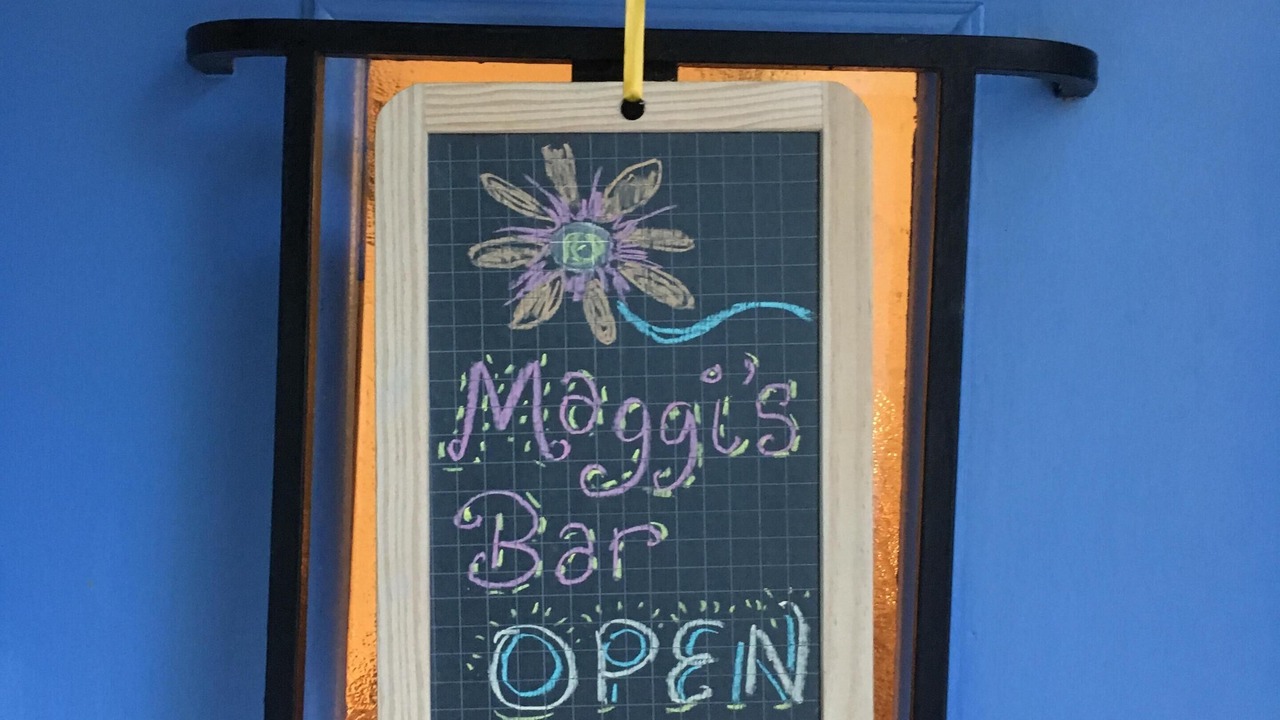 Maggi's
Bar
OPEN